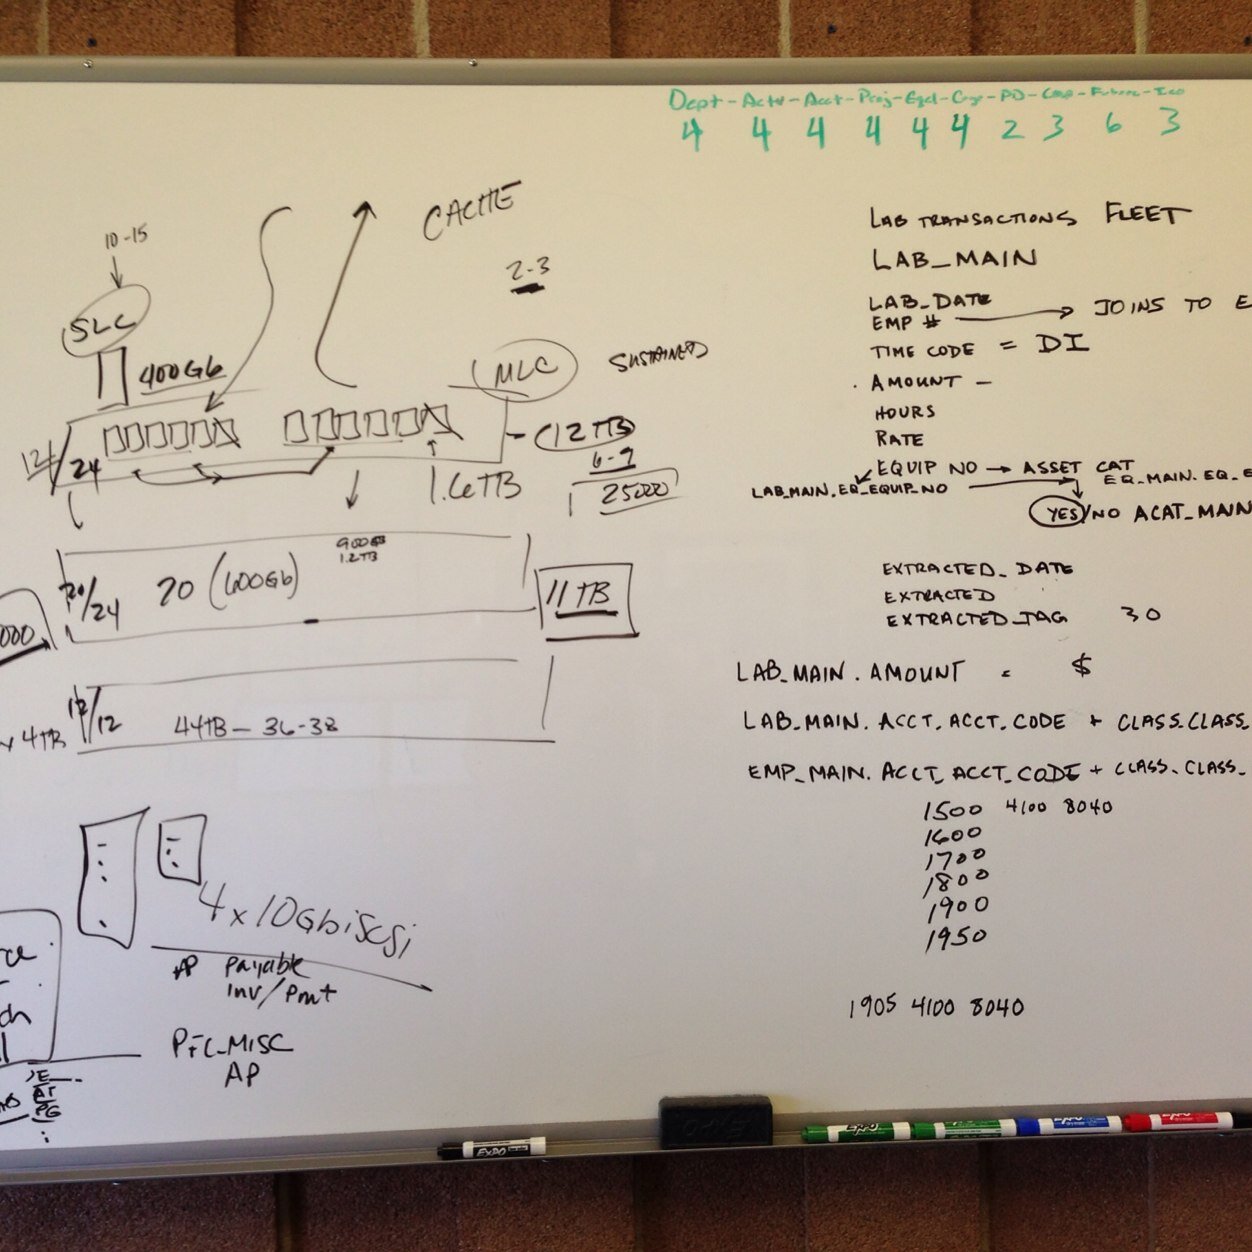 Dept - Actv - Acct - Proj - Egcl - - PO - - Future -
4 4 4 4 4 4 2 3 6 3
CACHE
2-3
10-15
SLC
400Gb
MLC
SUSTAINED
12TB
6-9
25000
12/24
1.6TB
900GB
1.2TB
20/24 20 (600Gb)
11TB
000
12/12 44TB - 36-38
x 4TB
4 x 10Gb iSCSi
AP Payable
Inv/Pmt
AP
AT
PG
LAB TRANSACTIONS FLEET
LAB_MAIN
LAB_DATE
EMP # → JOINS TO E
TIME CODE = DI
. AMOUNT -
HOURS
RATE
EQUIP NO → ASSET CAT
LAB_MAIN.EQ_EQUIP_NO → EQ_MAIN.EQ_E
YES/NO ACAT_MAIN
EXTRACTED_DATE
EXTRACTED
EXTRACTED_TAG 30
LAB_MAIN.AMOUNT = $
LAB_MAIN.ACCT_ACCT_CODE + CLASS.CLASS_
EMP_MAIN.ACCT_ACCT_CODE + CLASS_CLASS_
1500 4100 8040
1600
1700
1800
1900
1950
1905 4100 8040
EXPO
EXPO